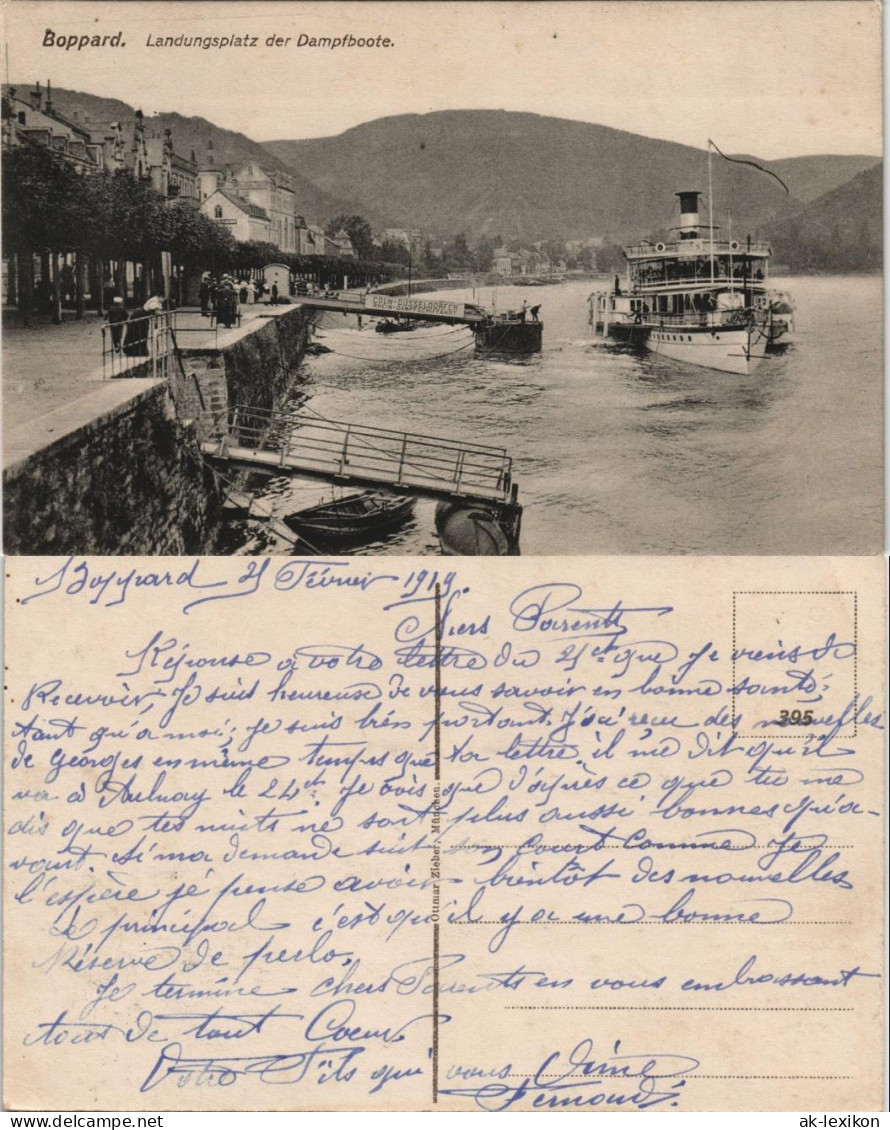 Boppard. Landungsplatz der Dampfboote.
CÖLN-DÜSSELDORFER
RHEIN-DAMPFSCHIFFAHRT
Boppard 25 Février 1919
Chers Parents
Réponse a votre lettre du 21ct que je viens de
Recevoir; Je suis heureuse de vous savoir en bonne santé;
tant qu'a moi; je suis bien portant. J'ai recu des nouvelles
de Georges en même temps que ta lettre il me dit qu'il
va a Aulnay le 24ct. Je vois que d'après ce que tu me
dis que tes nuits ne sont plus aussi bonnes qu'a-
vant. Si ma demande suit son court comme je
l'espère je pense avoir bientôt des nouvelles
Le principal c'est qu'il y a une bonne
Réserve de perlo.
Je termine chers Parents en vous embrassant
tous de tout Coeur
Votre Fils qui vous Aime
Fernand
395
Ottmar Zieher, München.
DELCAMPE.NET
ak-lexikon